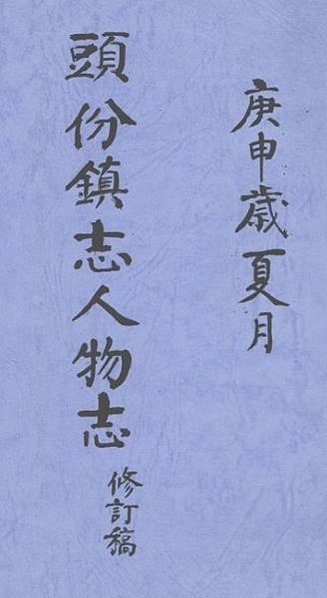 庚申歲夏月
頭份鎮志人物志
修訂稿